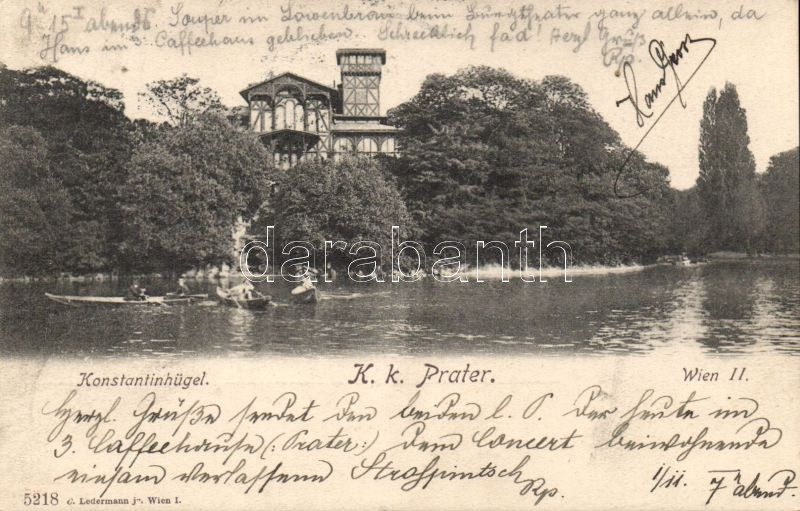 9ʰ 15ᴵ abends. Souper im Löwenbräu beim Burgtheater ganz allein, da
Hans im 3. Caffeehaus geblieben. Schrecklich fad! Herzl Grüß
Rp.
Hans
darabanth
Konstantinhügel. K. k. Prater. Wien II.
Herzl. Grüße sendet den beiden l. P. der heute im
3. Caffeehause (: Prater :) dem Concert beiwohnende
einsam verlassene
Rp. 1/II. 7ʰ abends.
5218 C. Ledermann jr. Wien I.